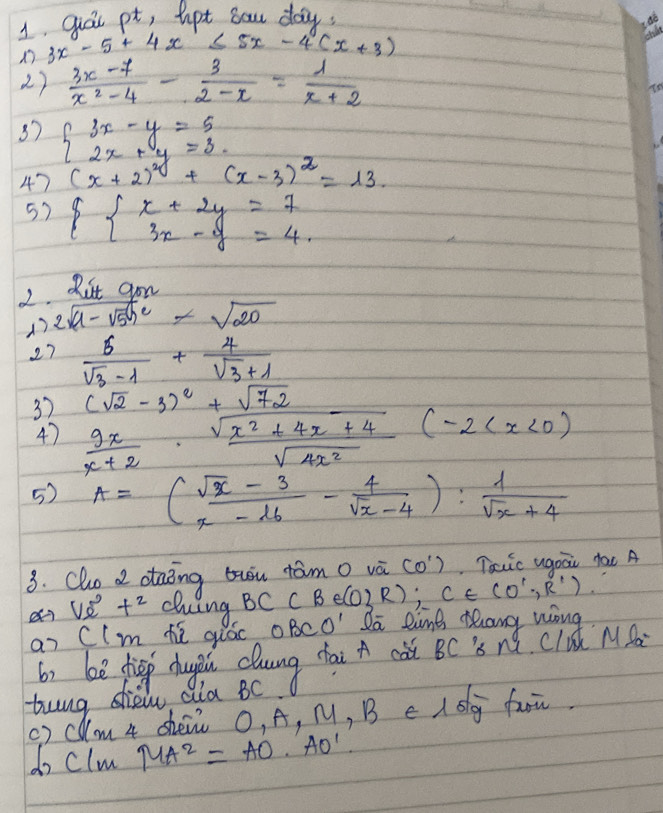 1. Giải pt, hpt sau đây:
1) 3x - 5 + 4x ≤ 5x - 4(x + 3)
2) (3x - 7)/(x² - 4) - 3/(2 - x) = 1/(x + 2)
3) { 3x - y = 5
2x + y = 3.
4) (x + 2)² + (x - 3)² = 13.
5) { x + 2y = 7
3x - y = 4.
2. Rút gọn
1) 2√(1 - √5)² - √20
2) 5/(√3 - 1) + 4/(√3 + 1)
3) (√2 - 3)² + √72
4) 9x/(x + 2) . √(x² + 4x + 4)/√(4x²) (-2 < x < 0)
5) A = ((√x - 3)/(x - 16) - 4/(√x - 4)) : 1/(√x + 4)
3. Cho 2 đường tròn tâm O và (O'). Txúc ngoài tại A
Vẽ t² chung BC (B ∈ (O; R); C ∈ (O'; R').
a) C/m tứ giác OBCO' là hình thang vuông.
b) kẻ tiếp tuyến chung tại A cắt BC ở M. C/m M là
trung điểm của BC.
c) C/m 4 điểm O, A, M, B ∈ 1 đg tròn.
d) C/m MA² = AO. AO'.